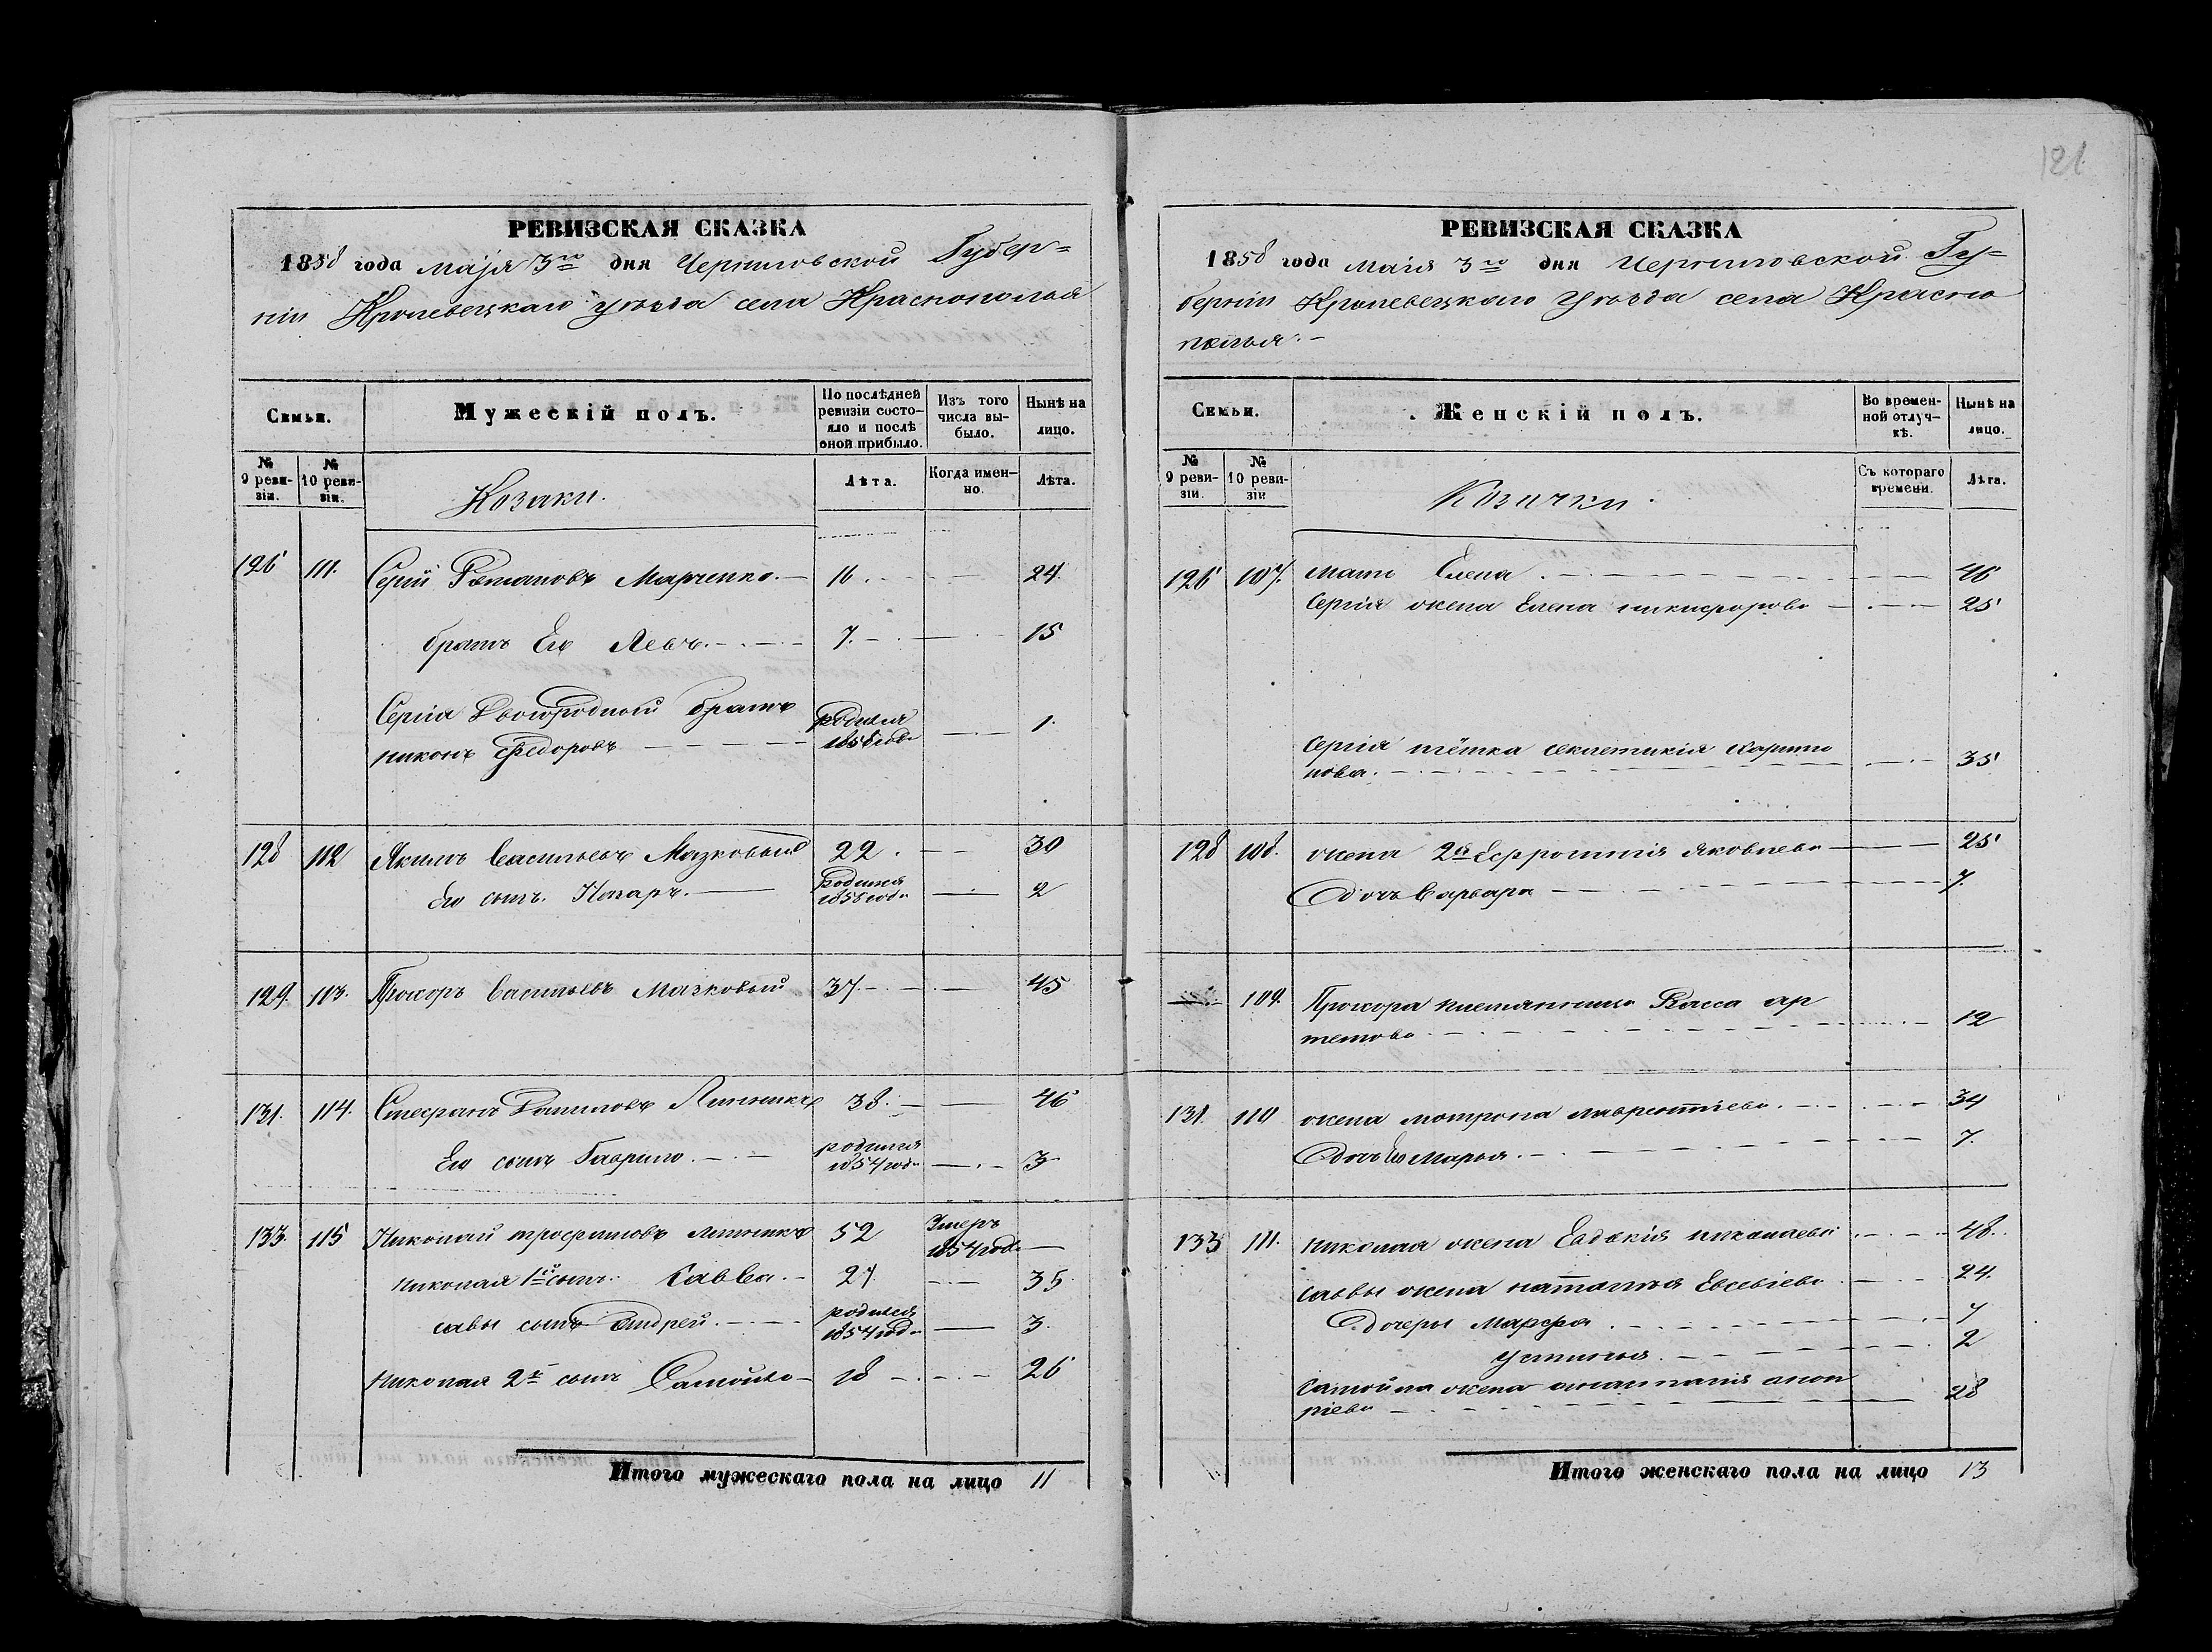 121
РЕВИЗСКАЯ СКАЗКА
1858 года маія 3го дня Черниговской Губер=
ніи Кролевецкаго уѣзда села Краснополья
Семьи.
Мужескій полъ.
По послѣдней ревизіи состояло и послѣ оной прибыло.
Изъ того числа выбыло.
Нынѣ на лицо.
№ 9 ревизіи.
№ 10 ревизіи.
Козаки.
Лѣта.
Когда именно.
Лѣта.
126 111. Сергій Романовъ Марченко. 16. 24.
братъ Его Левъ. 7. 15
Сергія Двоюродной братъ
Никонъ Федоровъ родился 1858 года 1.
128 112 Якимъ Васильевъ Мазковый 22. 30
Его сынъ. Назаръ. родился 1856 года 2
129. 113. Прохоръ Васильевъ Мазковый 37. 45
131. 114. Стефанъ Даниловъ Линникъ 38. 46
Его сынъ Гаврило. родился 1854 года 3
133. 115 Николай трофимовъ линникъ 52 Умеръ 1854 года
николая 1й сынъ. Савва. 27. 35.
савы сынъ Андрей. родился 1854 года 3.
Николая 2й сынъ Самойло 18 26
Итого мужескаго пола на лицо 11
РЕВИЗСКАЯ СКАЗКА
1858 года маія 3го дня Черниговской Гу=
берніи Кролевецкаго Уѣзда села Красно
полья.
Семьи.
Женскій полъ.
Во временной отлучкѣ.
Нынѣ на лицо.
№ 9 ревизіи.
№ 10 ревизіи
Козачки.
Съ котораго времени.
Лѣта.
126 107. мать Елена. 46
Сергія жена Елена никифорова 25
Сергія тётка секлетикія харито
нова. 35
128 108. жена 2я Ефросинія яковлева 25
Дочь Варвара 7.
109. Прохора племянница Васса ар
темова 12
131. 110 жена мотрона лаврентіева. 34
Дочь Его Марья. 7.
133 111. николая жена Евдокія николаева 48.
савы жена наталья Евсевіева 24.
Дочеры Марфа. 7
Устинья. 2
Самойла жена анастасія анон
ріева 28
Итого женскаго пола на лицо 13